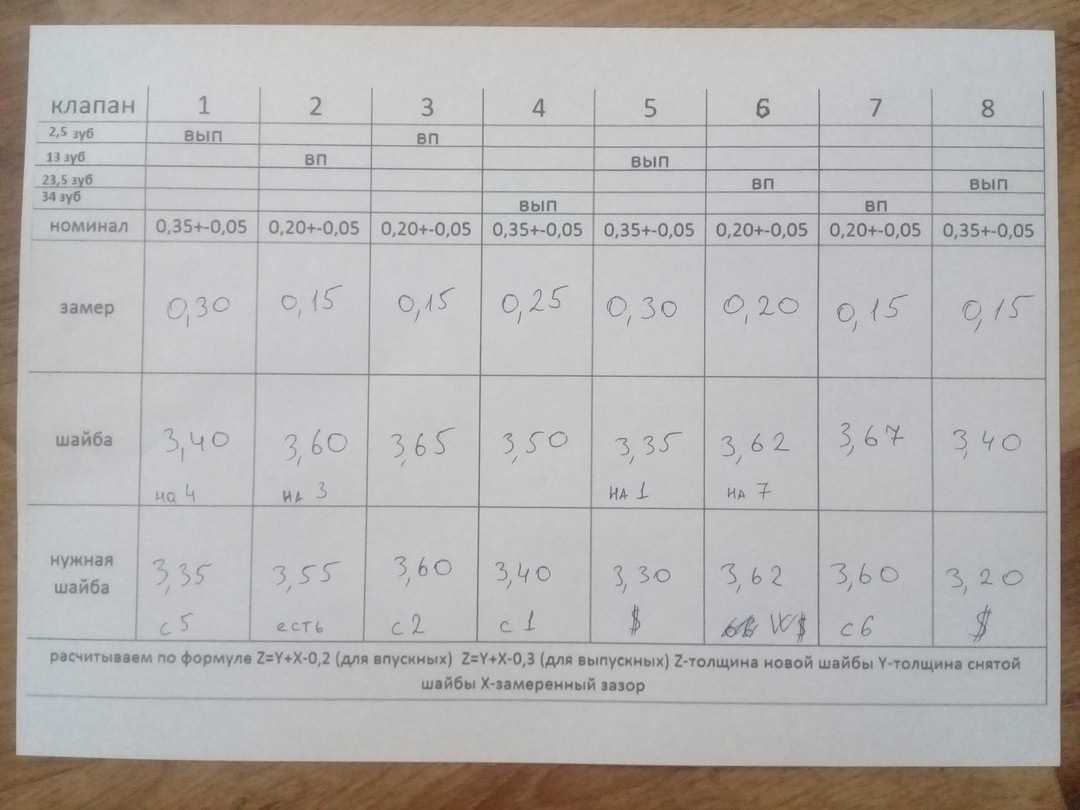 клапан 1 2 3 4 5 6 7 8
2,5 зуб вып вп
13 зуб вп вып
23,5 зуб вп вып
34 зуб вып вп
номинал 0,35+-0,05 0,20+-0,05 0,20+-0,05 0,35+-0,05 0,35+-0,05 0,20+-0,05 0,20+-0,05 0,35+-0,05
замер 0,30 0,15 0,15 0,25 0,30 0,20 0,15 0,15
шайба 3,40 3,60 3,65 3,50 3,35 3,62 3,67 3,40
на 4 на 3 на 1 на 7
нужная
шайба
3,35 3,55 3,60 3,40 3,30 3,62 3,60 3,20
с 5 есть с 2 с 1 $ $ с 6 $
расчитываем по формуле Z=Y+X-0,2 (для впускных) Z=Y+X-0,3 (для выпускных) Z-толщина новой шайбы Y-толщина снятой
шайбы X-замеренный зазор